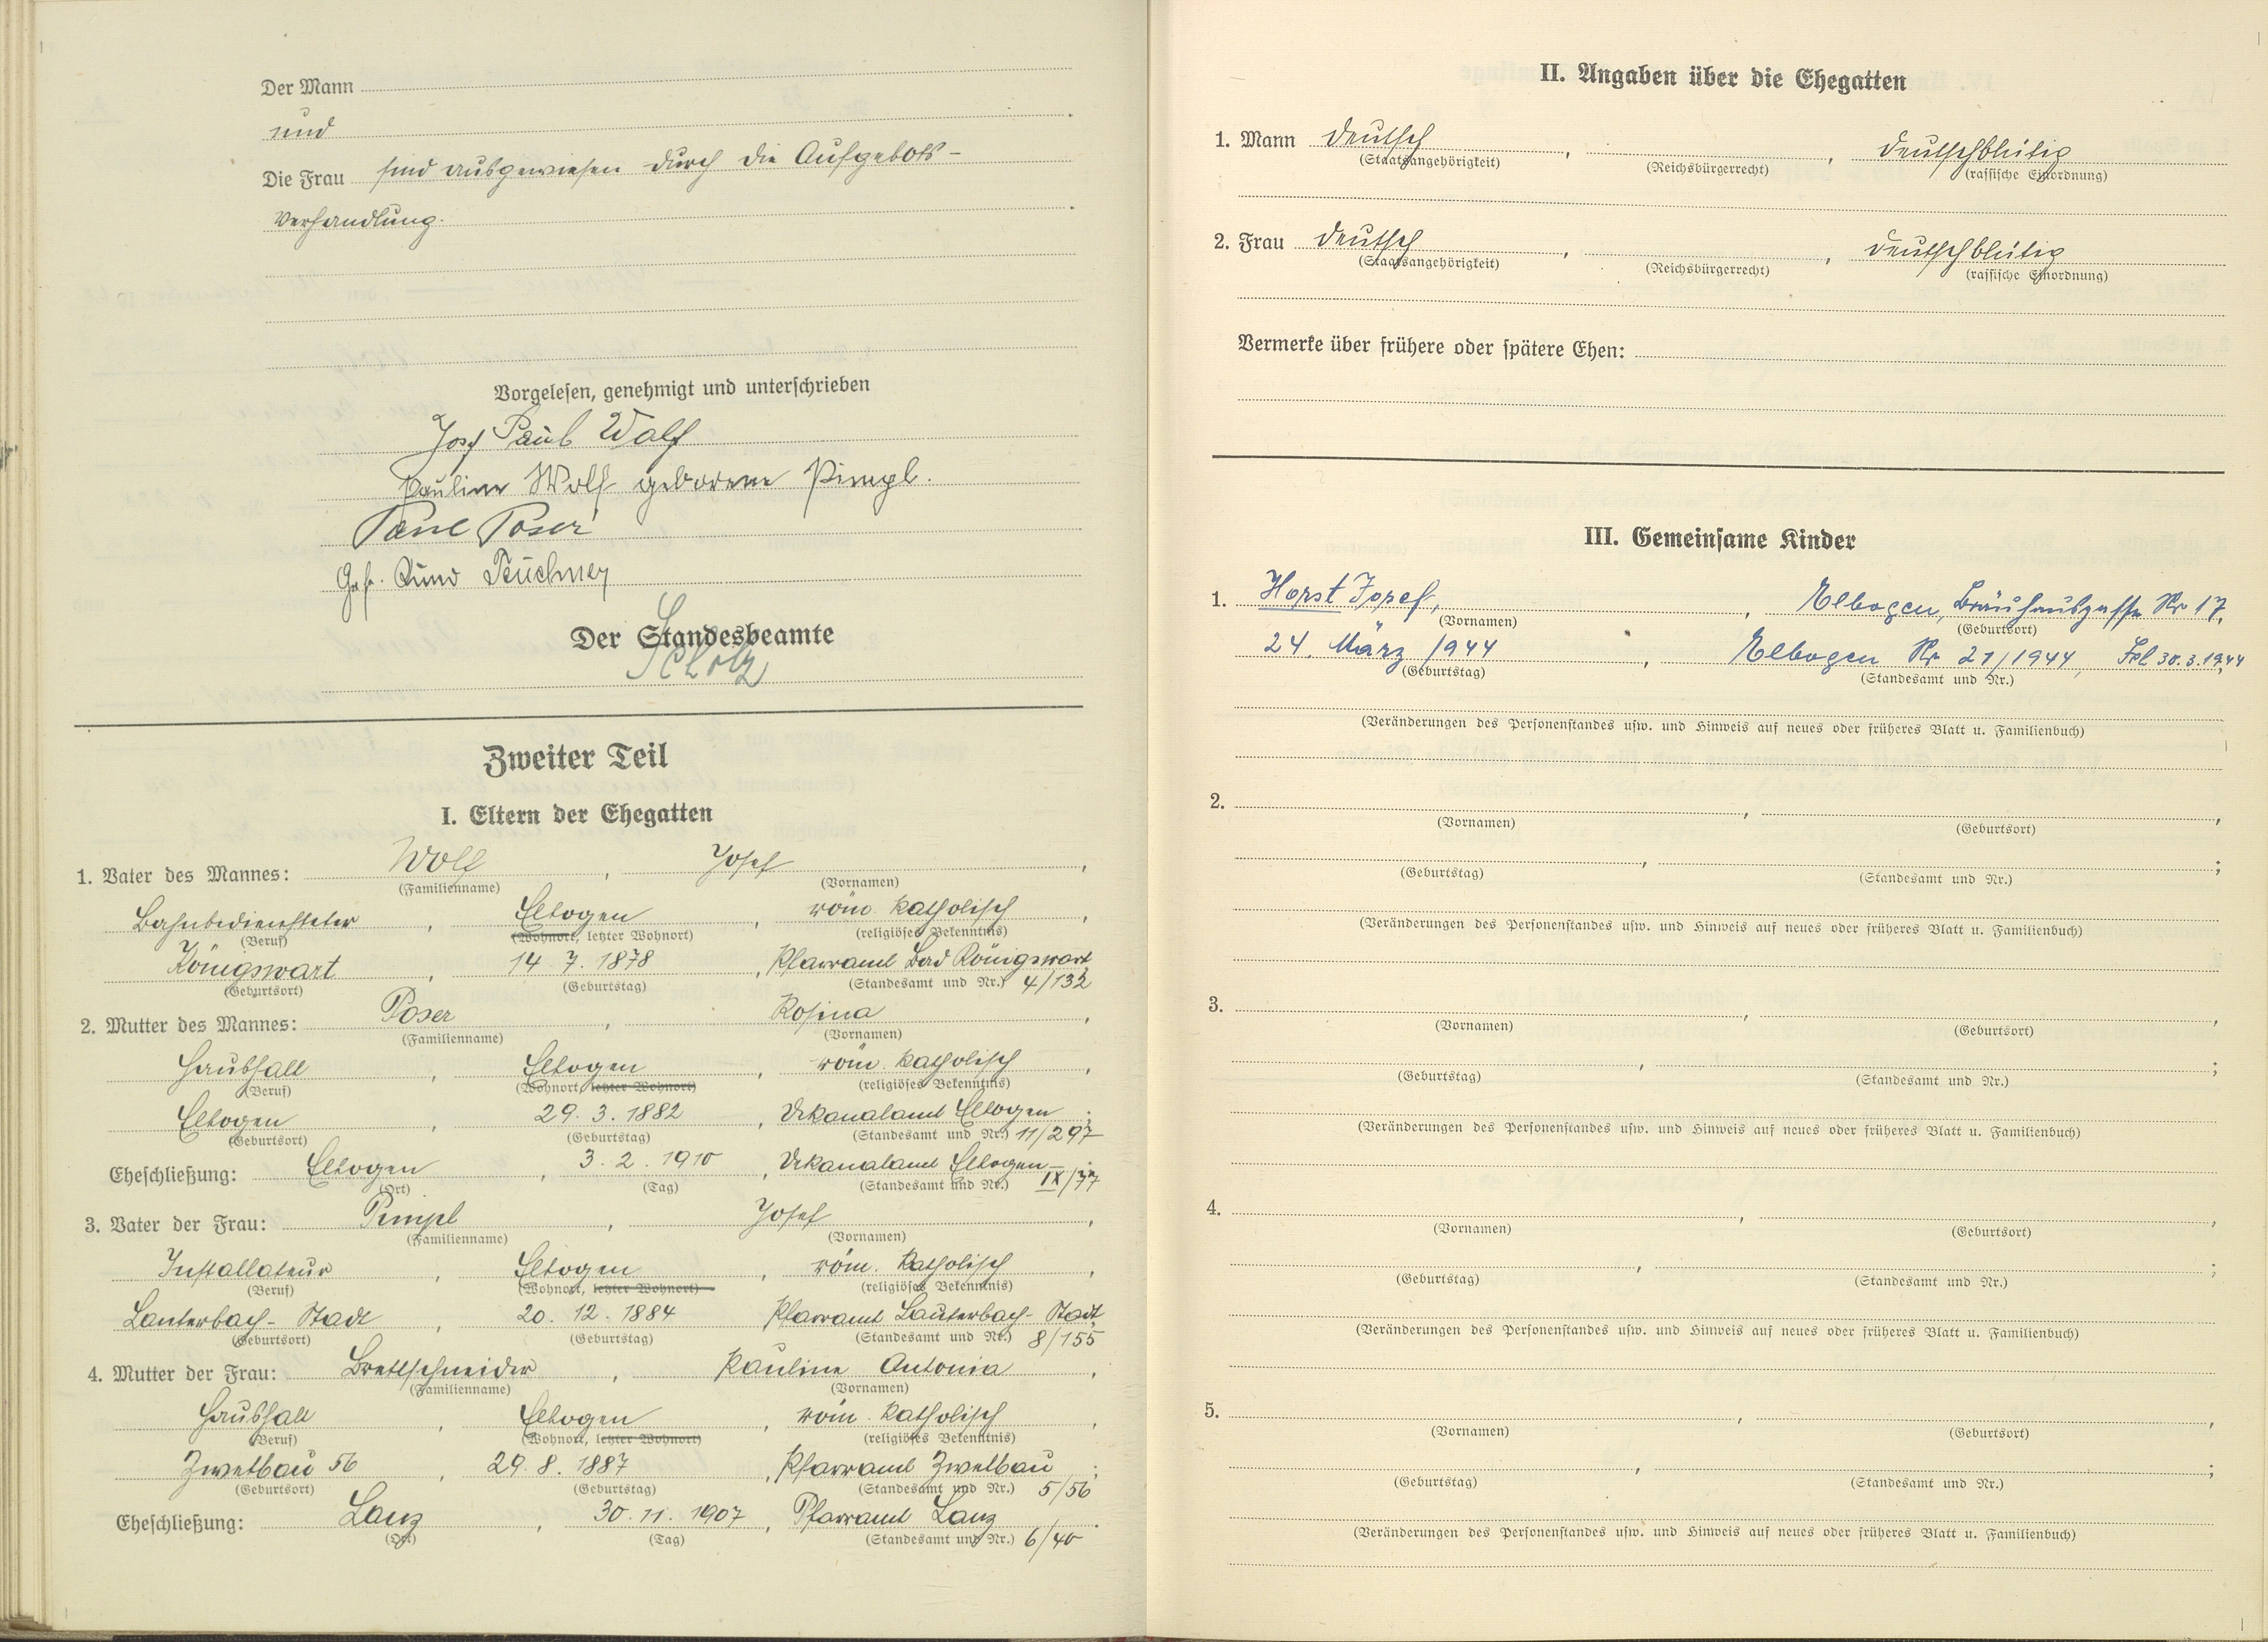 Der Mann
und
Die Frau sind ausgewiesen durch die Aufgebots-
verhandlung.
Vorgelesen, genehmigt und unterschrieben
Josef Paul Wolf
Pauline Wolf geborene Pimpl.
Paul Poser
Der Standesbeamte
Scholz
Zweiter Teil
I. Eltern der Ehegatten
1. Vater des Mannes: Wolf, Josef,
(Familienname) (Vornamen)
Bahnbediensteter, Elbogen, röm. katholisch,
(Beruf) (Wohnort, letzter Wohnort) (religiöses Bekenntnis)
Königswart, 14. 7. 1878, Pfarramt Bad Königswart
(Geburtsort) (Geburtstag) (Standesamt und Nr.) 4/132
2. Mutter des Mannes: Poser, Rosina,
(Familienname) (Vornamen)
Haushalt, Elbogen, röm. katholisch,
(Beruf) (Wohnort, letzter Wohnort) (religiöses Bekenntnis)
Elbogen, 29. 3. 1882, Dekanalamt Elbogen;
(Geburtsort) (Geburtstag) (Standesamt und Nr.) 11/297
Eheschließung: Elbogen, 3. 2. 1910, Dekanalamt Elbogen
(Ort) (Tag) (Standesamt und Nr.) IX/37
3. Vater der Frau: Pimpl, Josef,
(Familienname) (Vornamen)
Installateur, Elbogen, röm. katholisch,
(Beruf) (Wohnort, letzter Wohnort) (religiöses Bekenntnis)
Lauterbach-Stadt, 20. 12. 1884 Pfarramt Lauterbach-Stadt
(Geburtsort) (Geburtstag) (Standesamt und Nr.) 8/155
4. Mutter der Frau: Brettschneider, Pauline Antonia,
(Familienname) (Vornamen)
Haushalt, Elbogen, röm. katholisch,
(Beruf) (Wohnort, letzter Wohnort) (religiöses Bekenntnis)
Zwetbau 56, 29. 8. 1887, Pfarramt Zwetbau;
(Geburtsort) (Geburtstag) (Standesamt und Nr.) 5/56
Eheschließung: Lanz, 30. 11. 1907, Pfarramt Lanz.
(Ort) (Tag) (Standesamt und Nr.) 6/40
II. Angaben über die Ehegatten
1. Mann deutsch, , deutschblütig
(Staatsangehörigkeit) (Reichsbürgerrecht) (rassische Einordnung)
2. Frau deutsch, , deutschblütig
(Staatsangehörigkeit) (Reichsbürgerrecht) (rassische Einordnung)
Vermerke über frühere oder spätere Ehen:
III. Gemeinsame Kinder
1. Horst Josef, , Elbogen, Bräuhausgasse Nr 17,
(Vornamen) (Geburtsort)
24. März 1944, Elbogen Nr 21/1944, Fbl 30.3.1944
(Geburtstag) (Standesamt und Nr.)
(Veränderungen des Personenstandes usw. und Hinweis auf neues oder früheres Blatt u. Familienbuch)
2. , ,
(Vornamen) (Geburtsort)
, ;
(Geburtstag) (Standesamt und Nr.)
(Veränderungen des Personenstandes usw. und Hinweis auf neues oder früheres Blatt u. Familienbuch)
3. , ,
(Vornamen) (Geburtsort)
, ;
(Geburtstag) (Standesamt und Nr.)
(Veränderungen des Personenstandes usw. und Hinweis auf neues oder früheres Blatt u. Familienbuch)
4. , ,
(Vornamen) (Geburtsort)
, ;
(Geburtstag) (Standesamt und Nr.)
(Veränderungen des Personenstandes usw. und Hinweis auf neues oder früheres Blatt u. Familienbuch)
5. , ,
(Vornamen) (Geburtsort)
, ;
(Geburtstag) (Standesamt und Nr.)
(Veränderungen des Personenstandes usw. und Hinweis auf neues oder früheres Blatt u. Familienbuch)